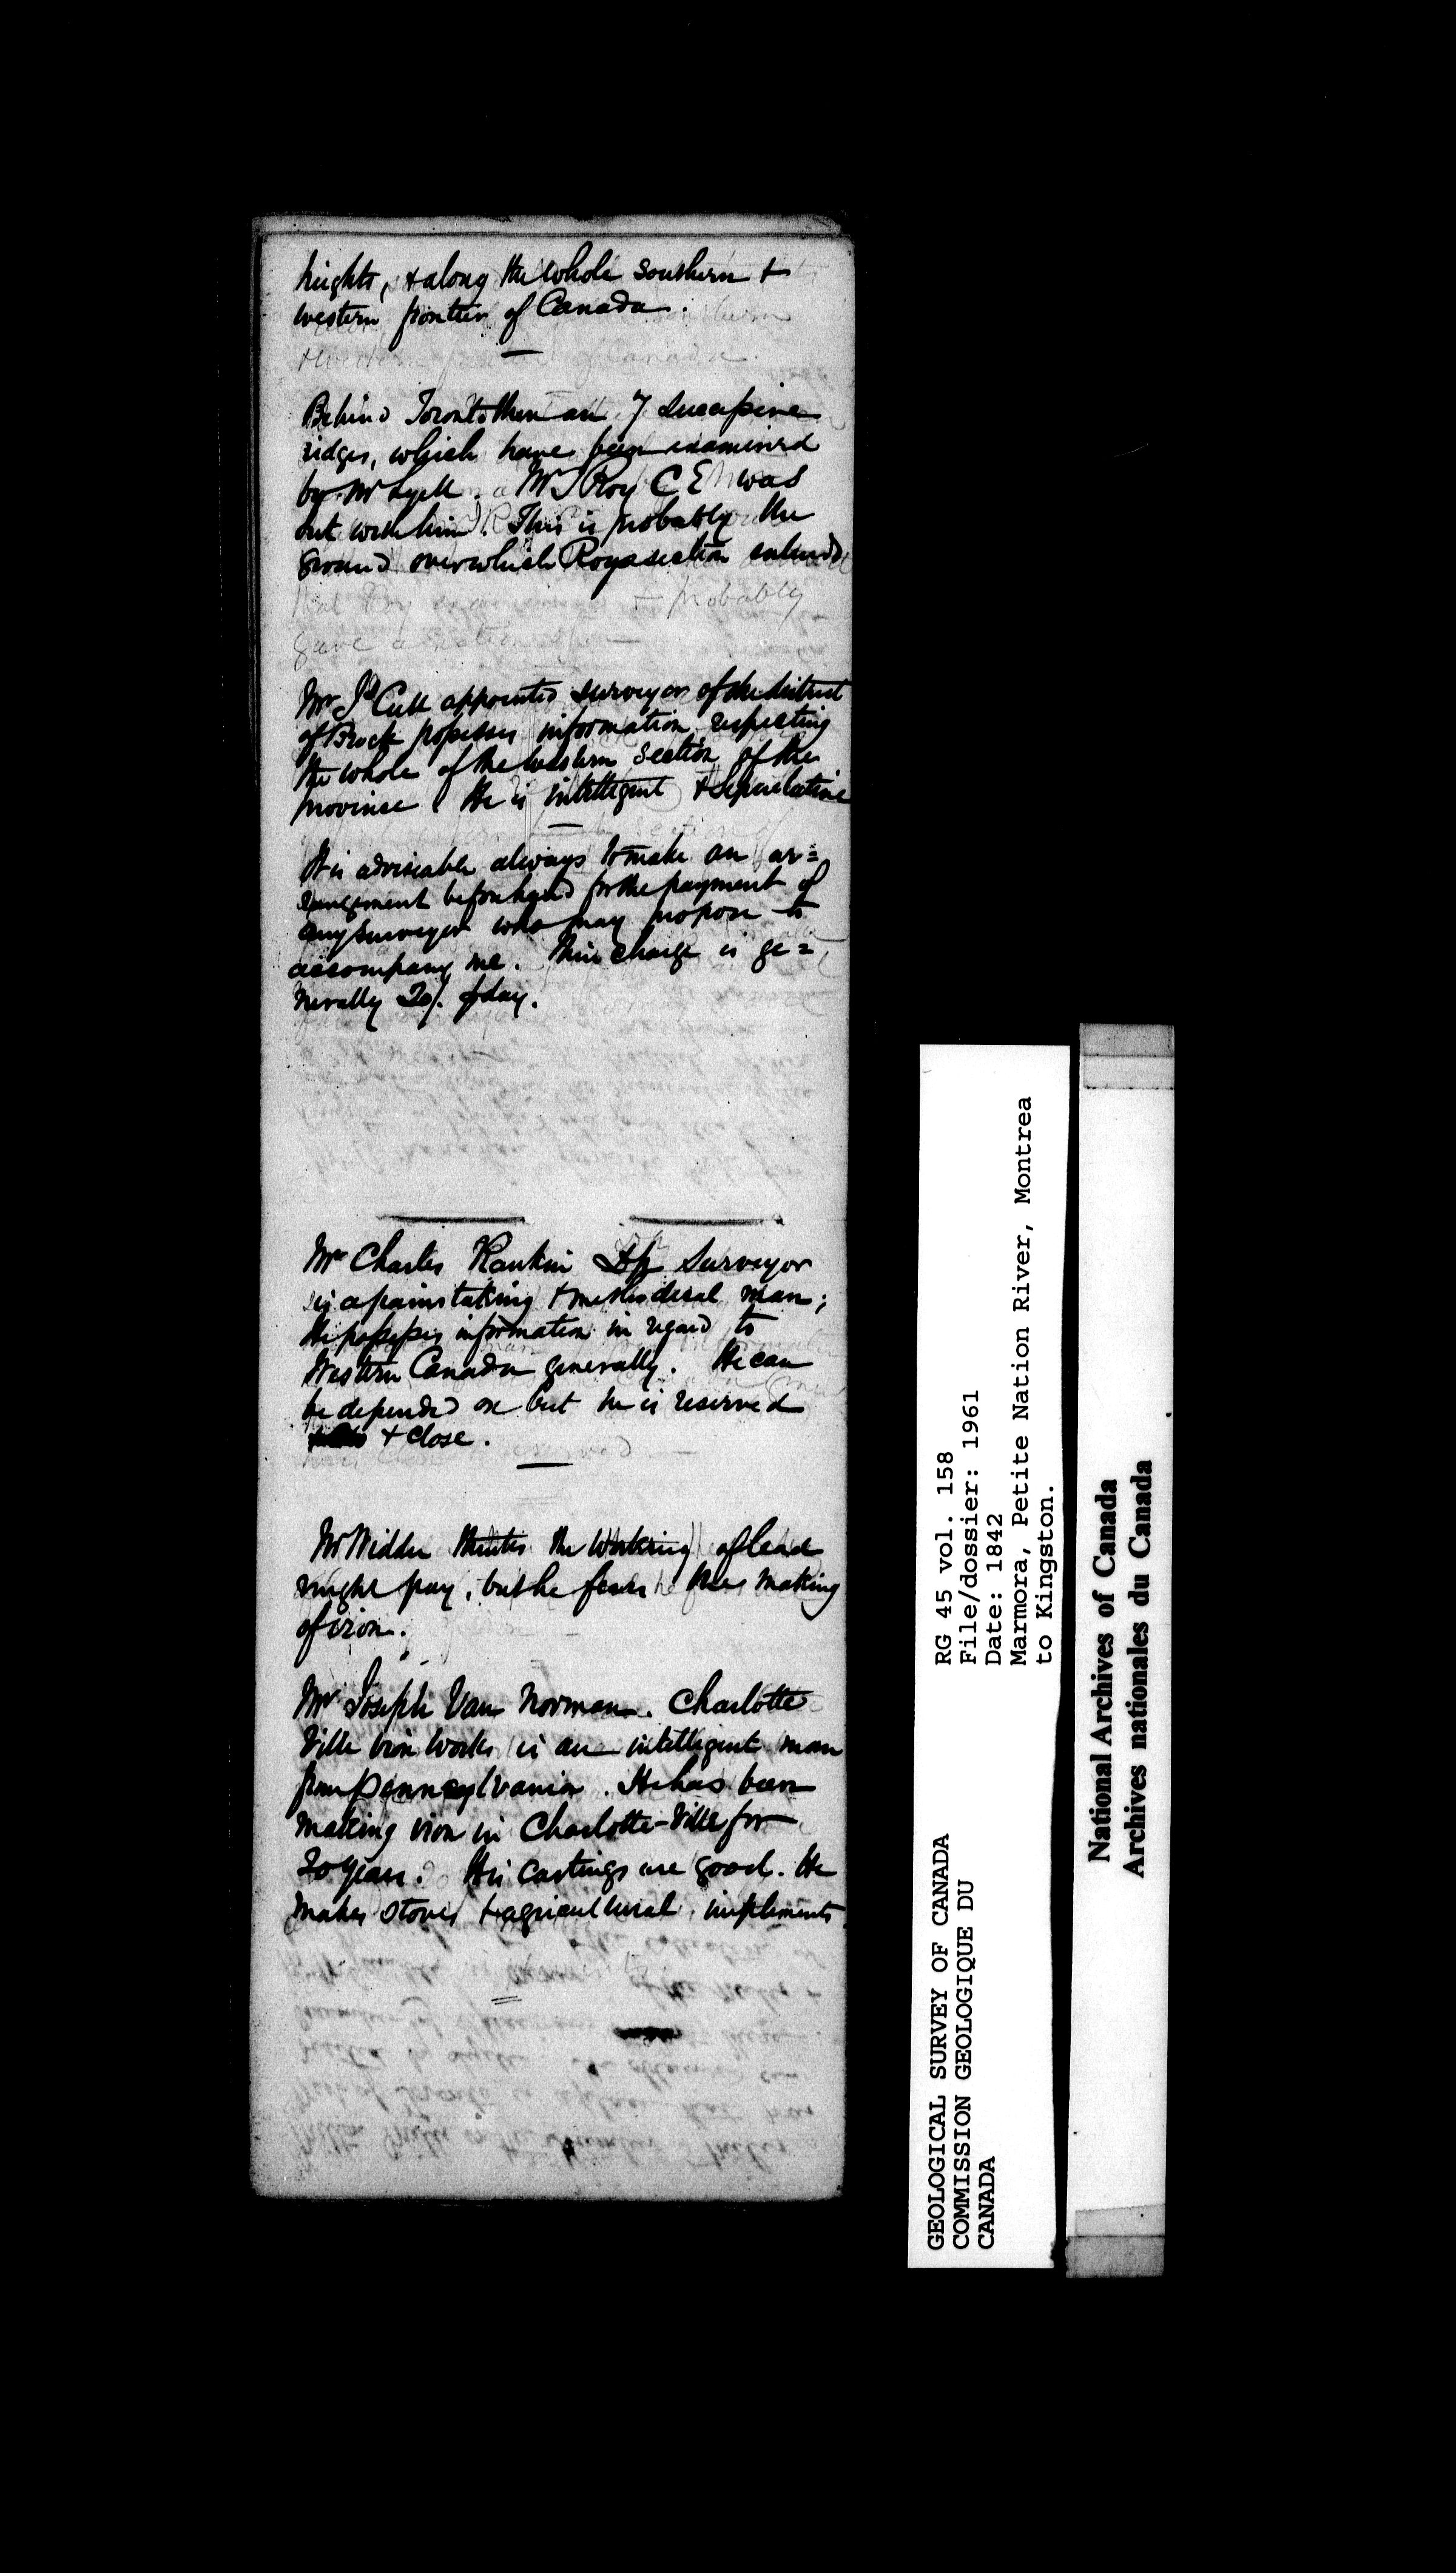 heights, & along the whole southern &
western frontier of Canada.
Behind Toronto there are 7 successive
ridges, which have been examined
by Mr Lyell. Mr Roy C E was
out with him. This is probably the
ground over which Roy's section extends
& probably
gave a section
Mr Cull appointed surveyor of the district
of Brock possesses information respecting
the whole of the western section of the
province. He is intelligent & speculative
It is adviseable always to make an ar=
rangement beforehand for the payment of
any surveyor who may propose to
accompany me. Their charge is ge=
nerally 20/. day.
Mr Charles Rankin Dep Surveyor
is a painstaking & methodical man;
He possesses information in regard to
Western Canada generally. He can
be depended on but he is reserved
& close.
Mr Widder thinks the working of lead
might pay, but he fears the making
of iron.
Mr Joseph Van Norman. Charlotte
Ville Iron Works is an intelligent man
from Pennsylvania. He has been
making iron in Charlotte-Ville for
20 years. His castings are good. He
makes stoves & agricultural implements
RG 45 vol. 158
File/dossier: 1961
Date: 1842
Marmora, Petite Nation River, Montrea
to Kingston.
GEOLOGICAL SURVEY OF CANADA
COMMISSION GEOLOGIQUE DU
CANADA
National Archives of Canada
Archives nationales du Canada